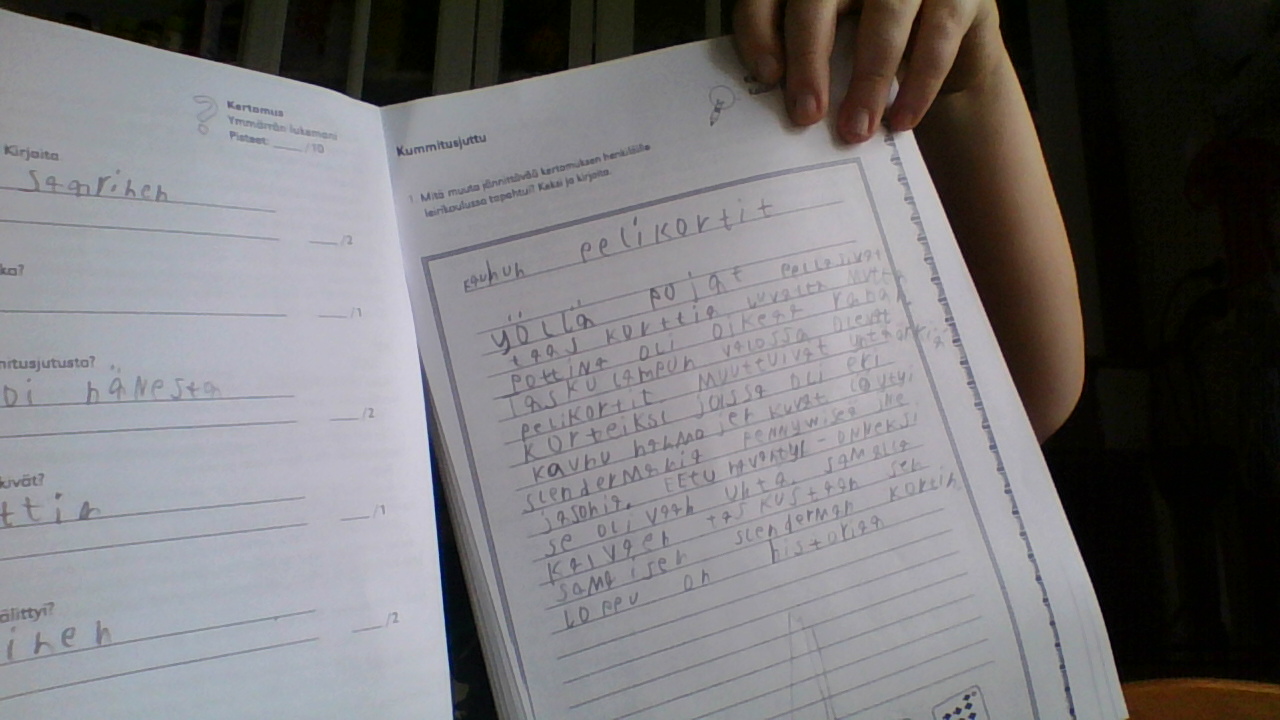 Kertomus
Ymmärrän lukemani
Pisteet: ____ /10
Kirjoita
Saarinen
___/2
ka?
___/1
mitusjutusta?
oi hänestä
___/2
kuvät?
ttia
___/1
älittyi?
inen
___/2
Kummitusjuttu
1. Mitä muuta jännittävää kertomuksen henkilöille
leirikoulussa tapahtui? Keksi ja kirjoita.
kauhun pelikortit
yöllä pojat pelasivat
taas korttia
pottina oli oikeat rahat
Taskulampun valossa olevat
pelikortit muuttuivat
korteiksi joissa oli eri
kauhu hahmojen kuvat löytyi
slendermania pennywisea
jasonia. EEtu havahtyi - onneksi
se oli vaan unta. samalla
kaivaen taskustaan sen
samaisen slenderman kortin
loppu on historiaa